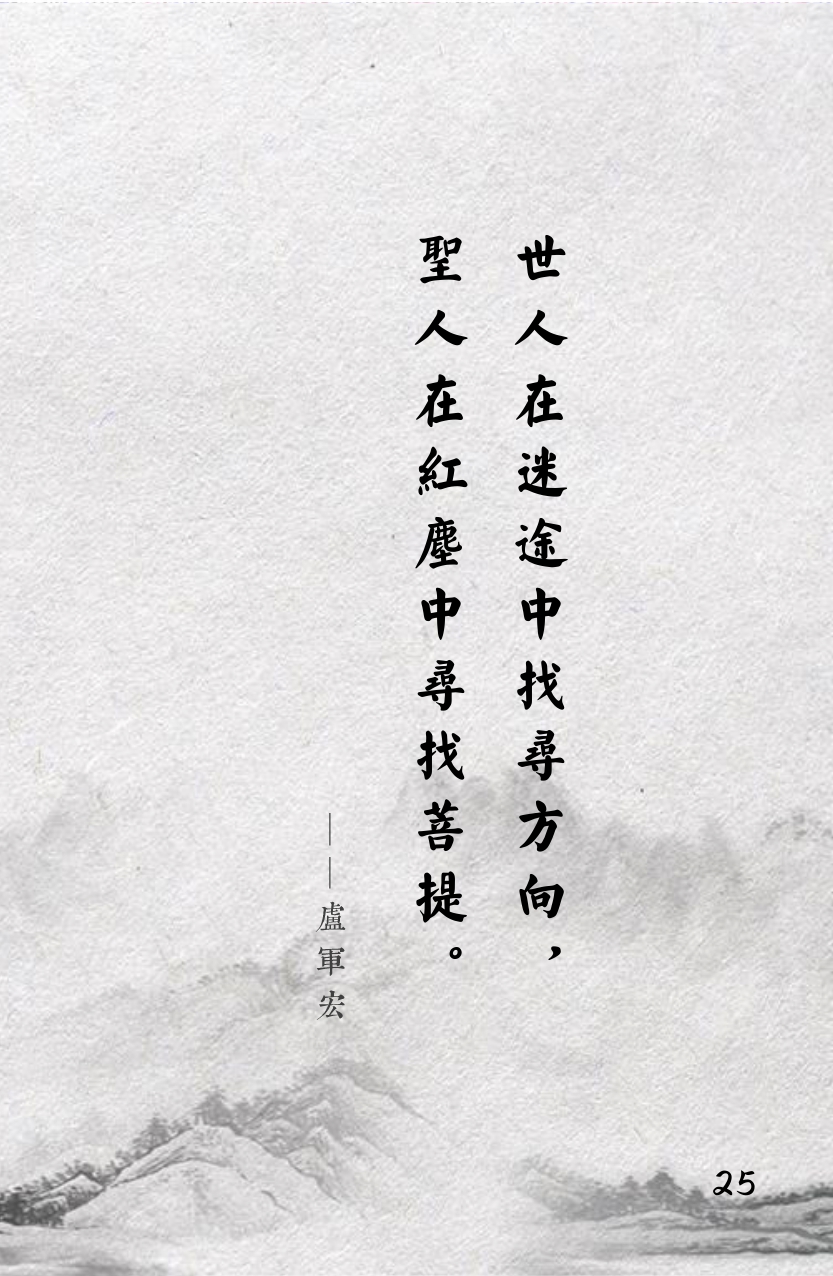 世人在迷途中找尋方向，
聖人在紅塵中尋找菩提。
——盧軍宏
25